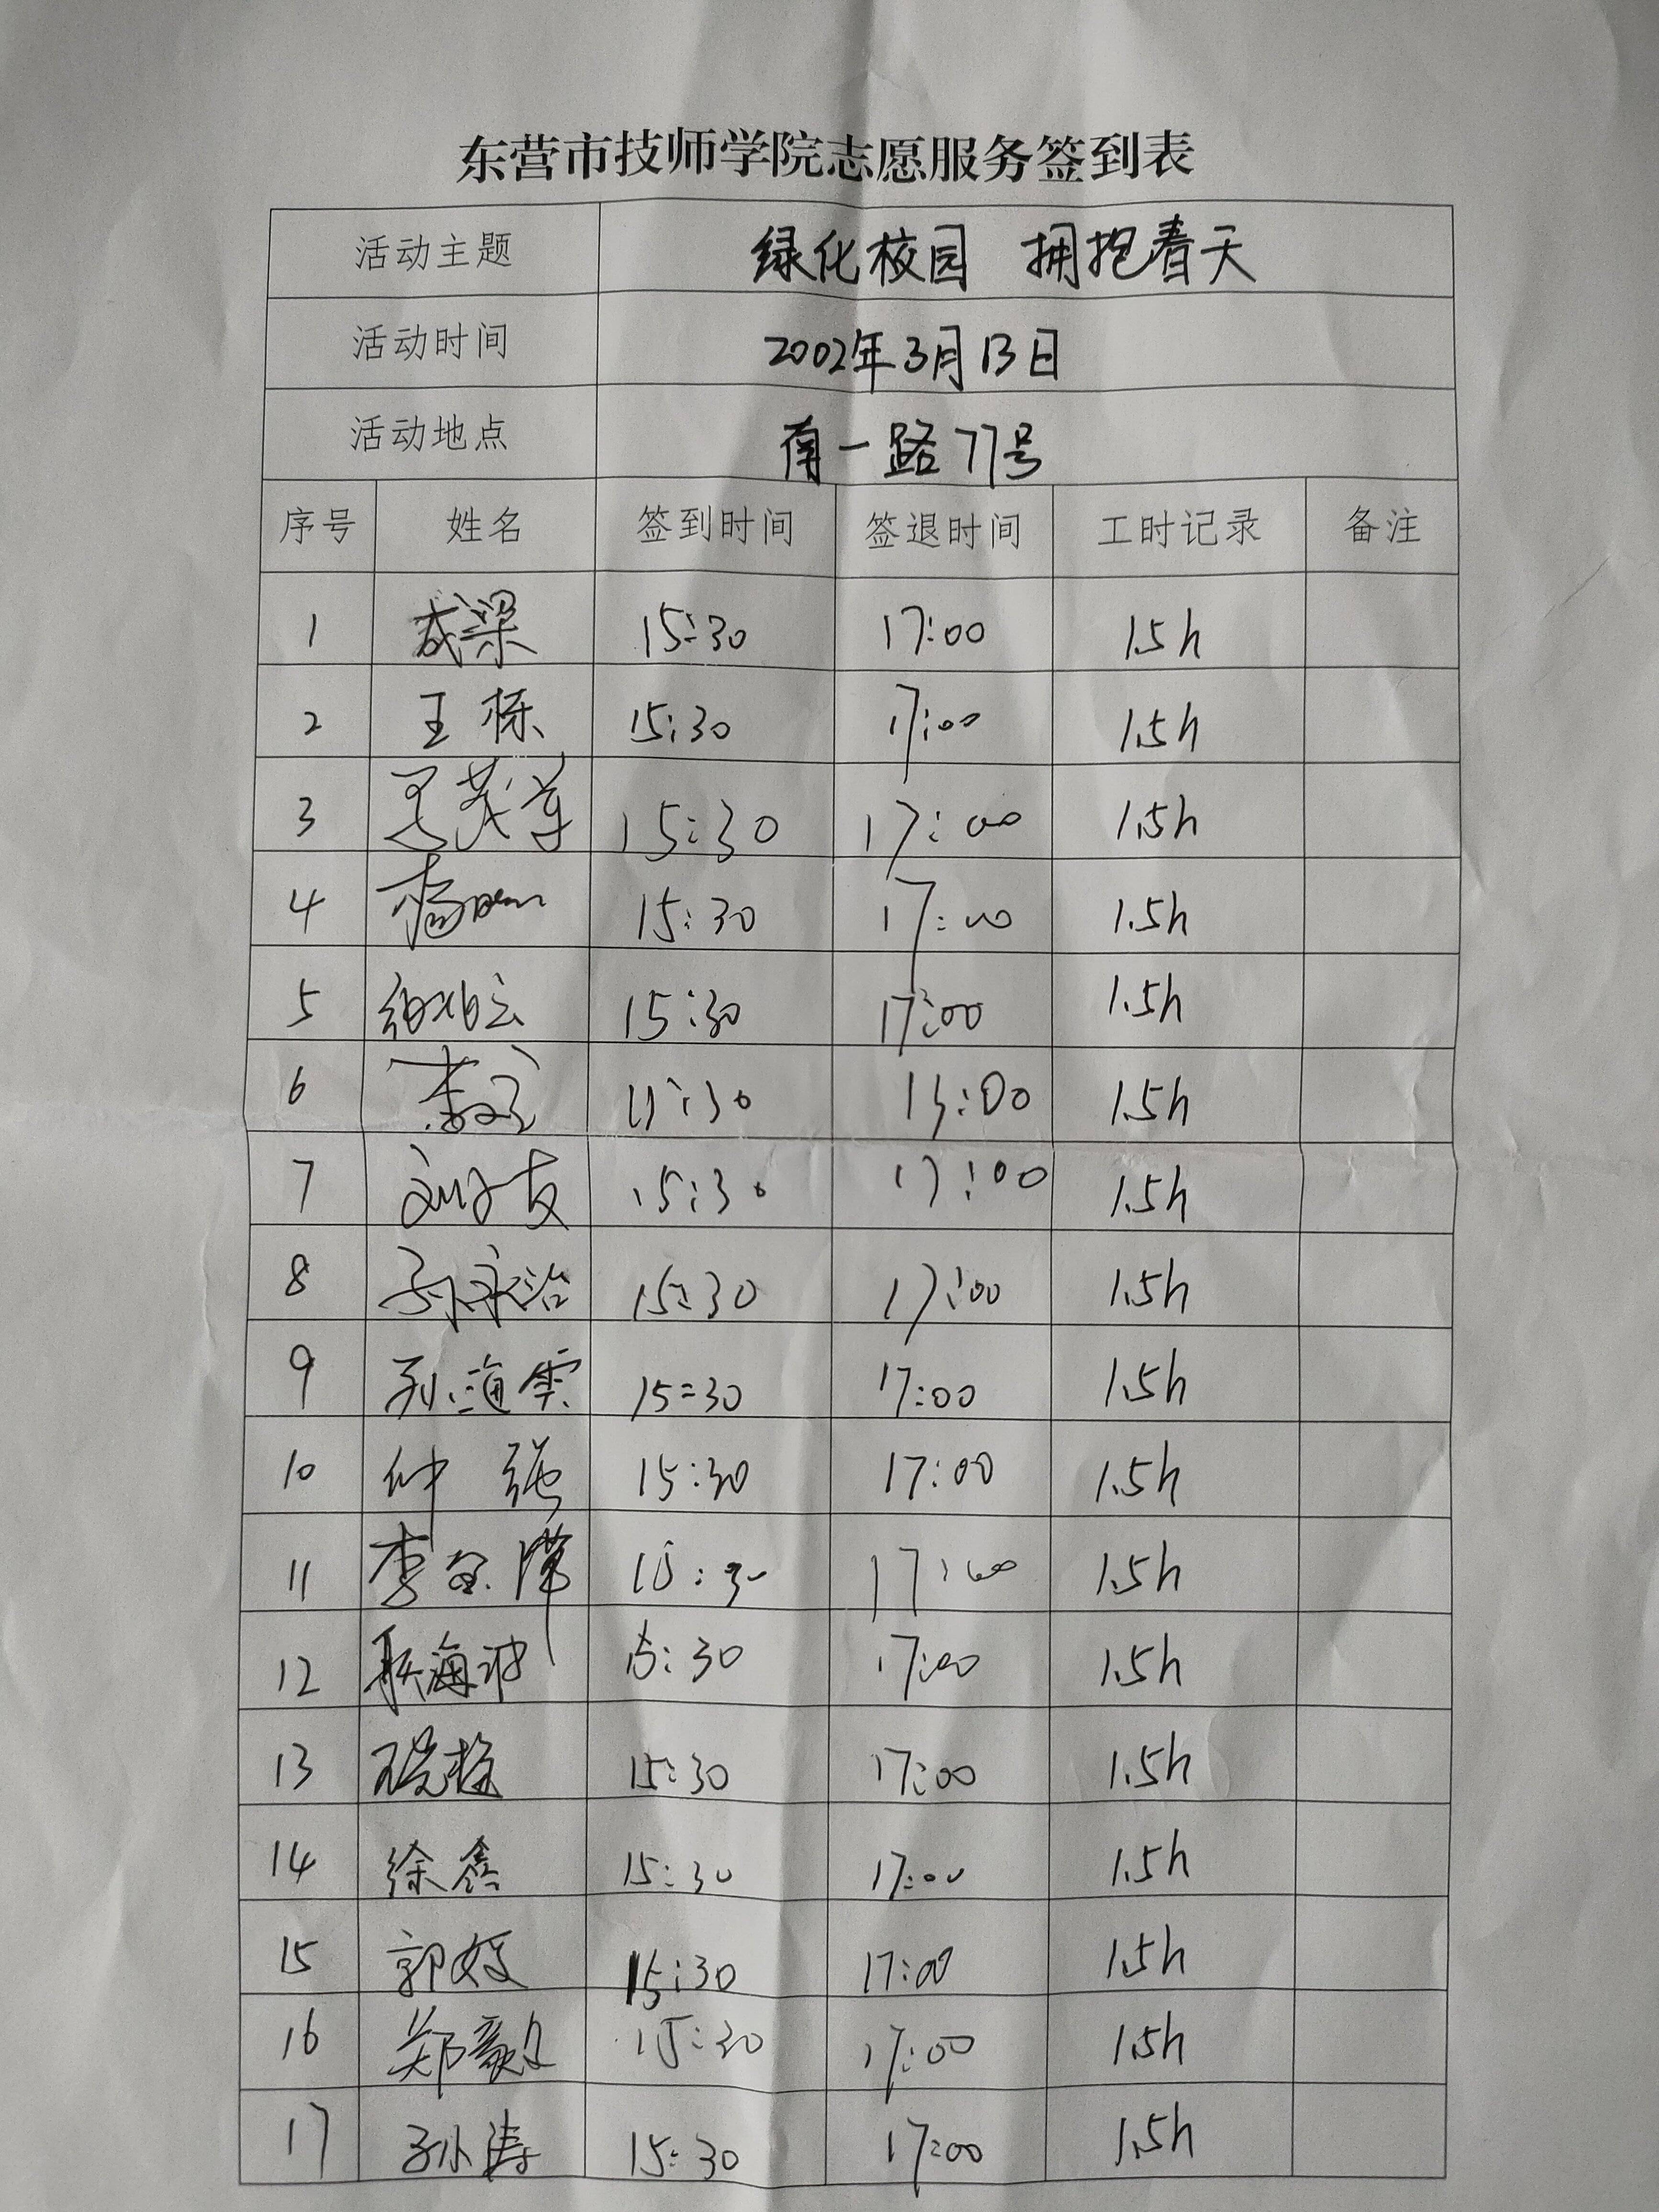 东营市技师学院志愿服务签到表
活动主题 绿化校园 拥抱春天
活动时间 2002年3月13日
活动地点 南一路77号
序号 姓名 签到时间 签退时间 工时记录 备注
1 成梁 15:30 17:00 1.5h
2 王栋 15:30 17:00 1.5h
3 15:30 17:00 1.5h
4 15:30 17:00 1.5h
5 15:30 17:00 1.5h
6 1.5h
7 刘友 15:30 17:00 1.5h
8 孙永治 15:30 17:00 1.5h
9 孙海雲 15:30 17:00 1.5h
10 仲强 15:30 17:00 1.5h
11 李 15:30 17:00 1.5h
12 耿海波 15:30 17:00 1.5h
13 15:30 17:00 1.5h
14 徐鑫 15:30 17:00 1.5h
15 郭姣 15:30 17:00 1.5h
16 郑毅 15:30 17:00 1.5h
17 孙涛 15:30 17:00 1.5h